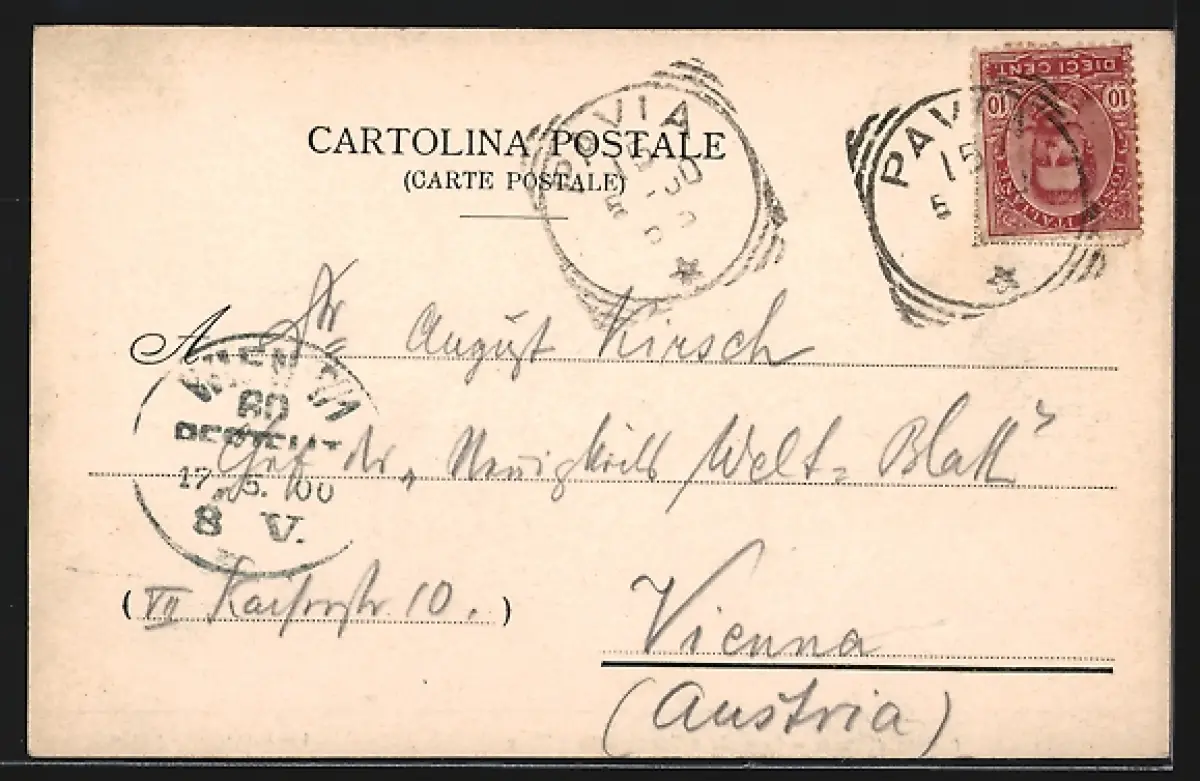 CARTOLINA POSTALE
(CARTE POSTALE)
PAVIA
15
5
PAV
15
5
DIECI CENT.
10 10
A Hr August Kirsch
Chef der „Neuigkeits Welt=Blatt"
(VII Kaiserstr. 10.)
Vienna
(Austria)
WIEN
60
BESTELLT
17.5.00
8 V.